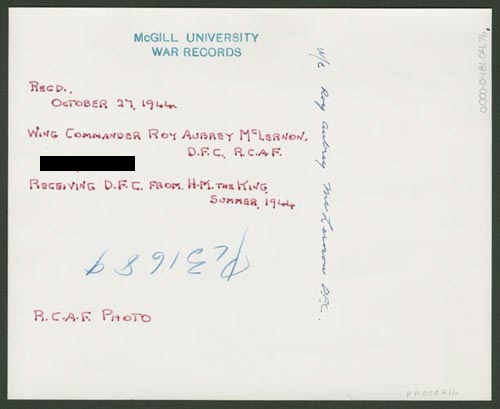 McGILL UNIVERSITY
WAR RECORDS
REC'D.,
OCTOBER 27, 1944.
WING COMMANDER ROY AUBREY McLERNON.
D.F.C., R.C.A.F.
RECEIVING D.F.C. FROM H.M. THE KING,
SUMMER, 1944
PL31689
R.C.A.F. PHOTO
W/C Roy Aubrey McLernon DFC.
0000-0481.04.76
PR010214